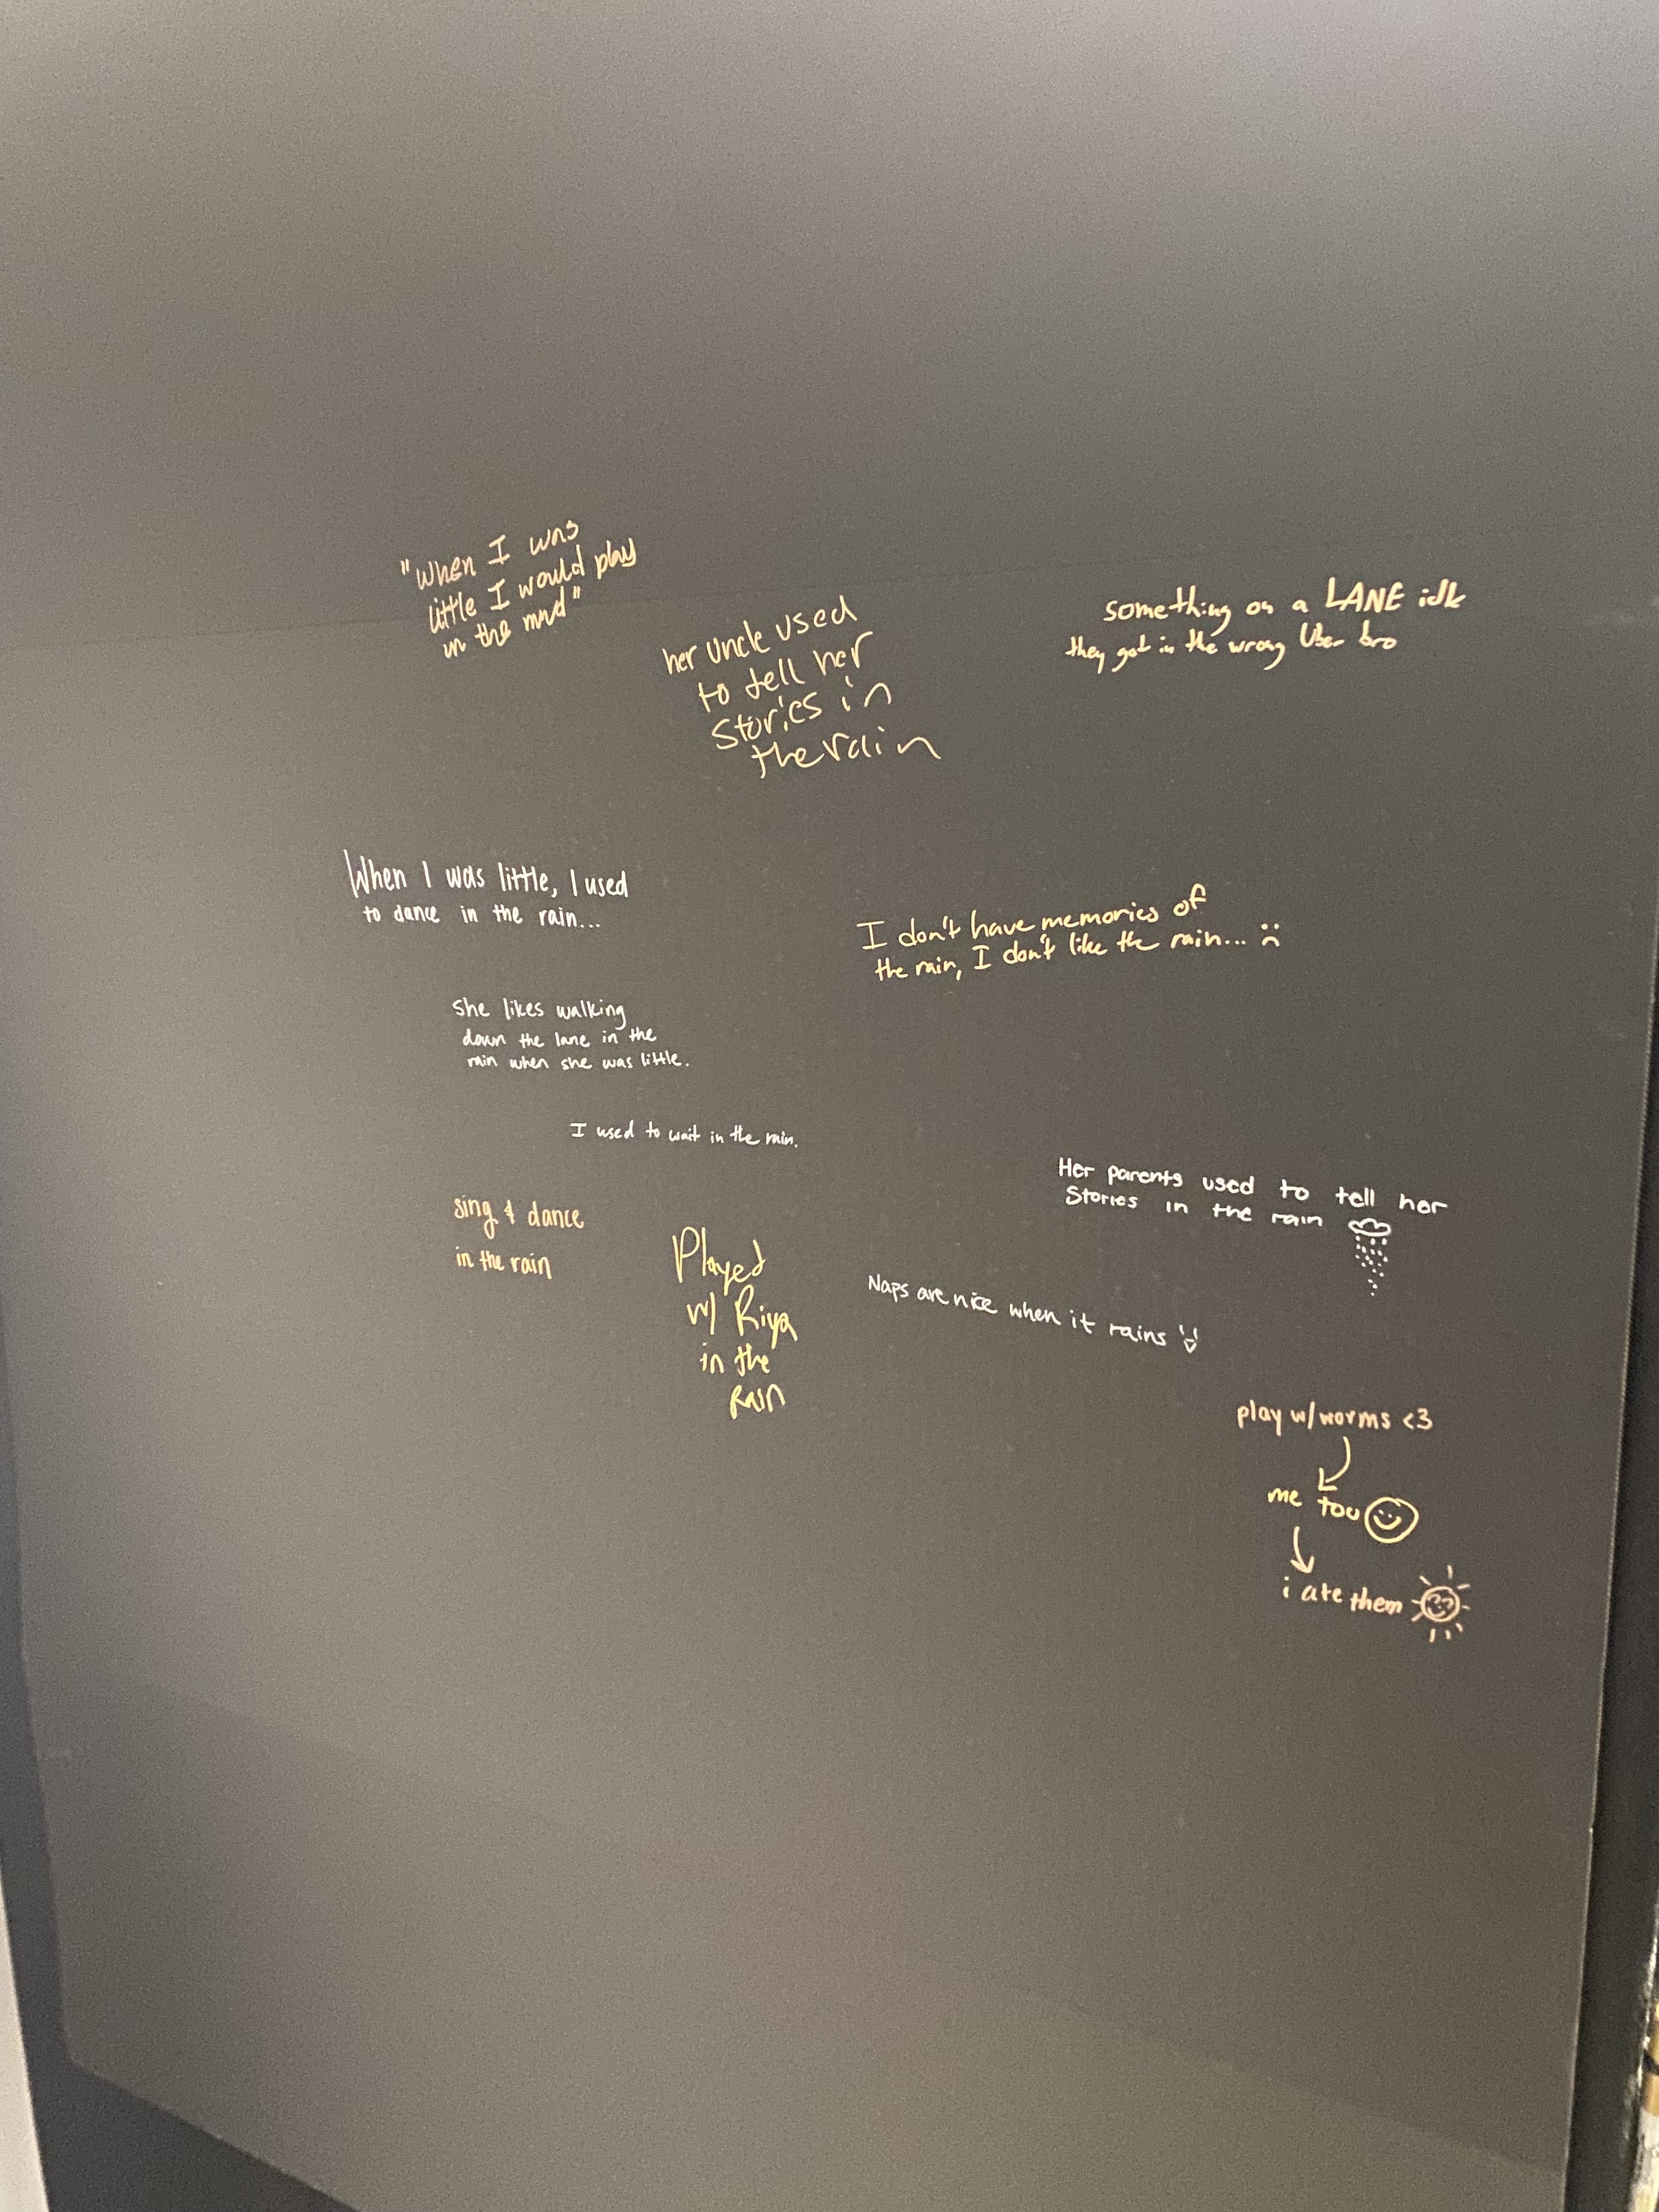 "When I was
little I would play
in the mud"
her uncle used
to tell her
stories in
the rain
something on a LANE idk
they got in the wrong Uber bro
When I was little, I used
to dance in the rain...
I don't have memories of
the rain, I don't like the rain... :(
She likes walking
down the lane in the
rain when she was little.
I used to wait in the rain.
Her parents used to tell her
Stories in the rain
sing & dance
in the rain
Played
w/ Riya
in the
RAIN
Naps are nice when it rains
play w/worms <3
me too
i ate them